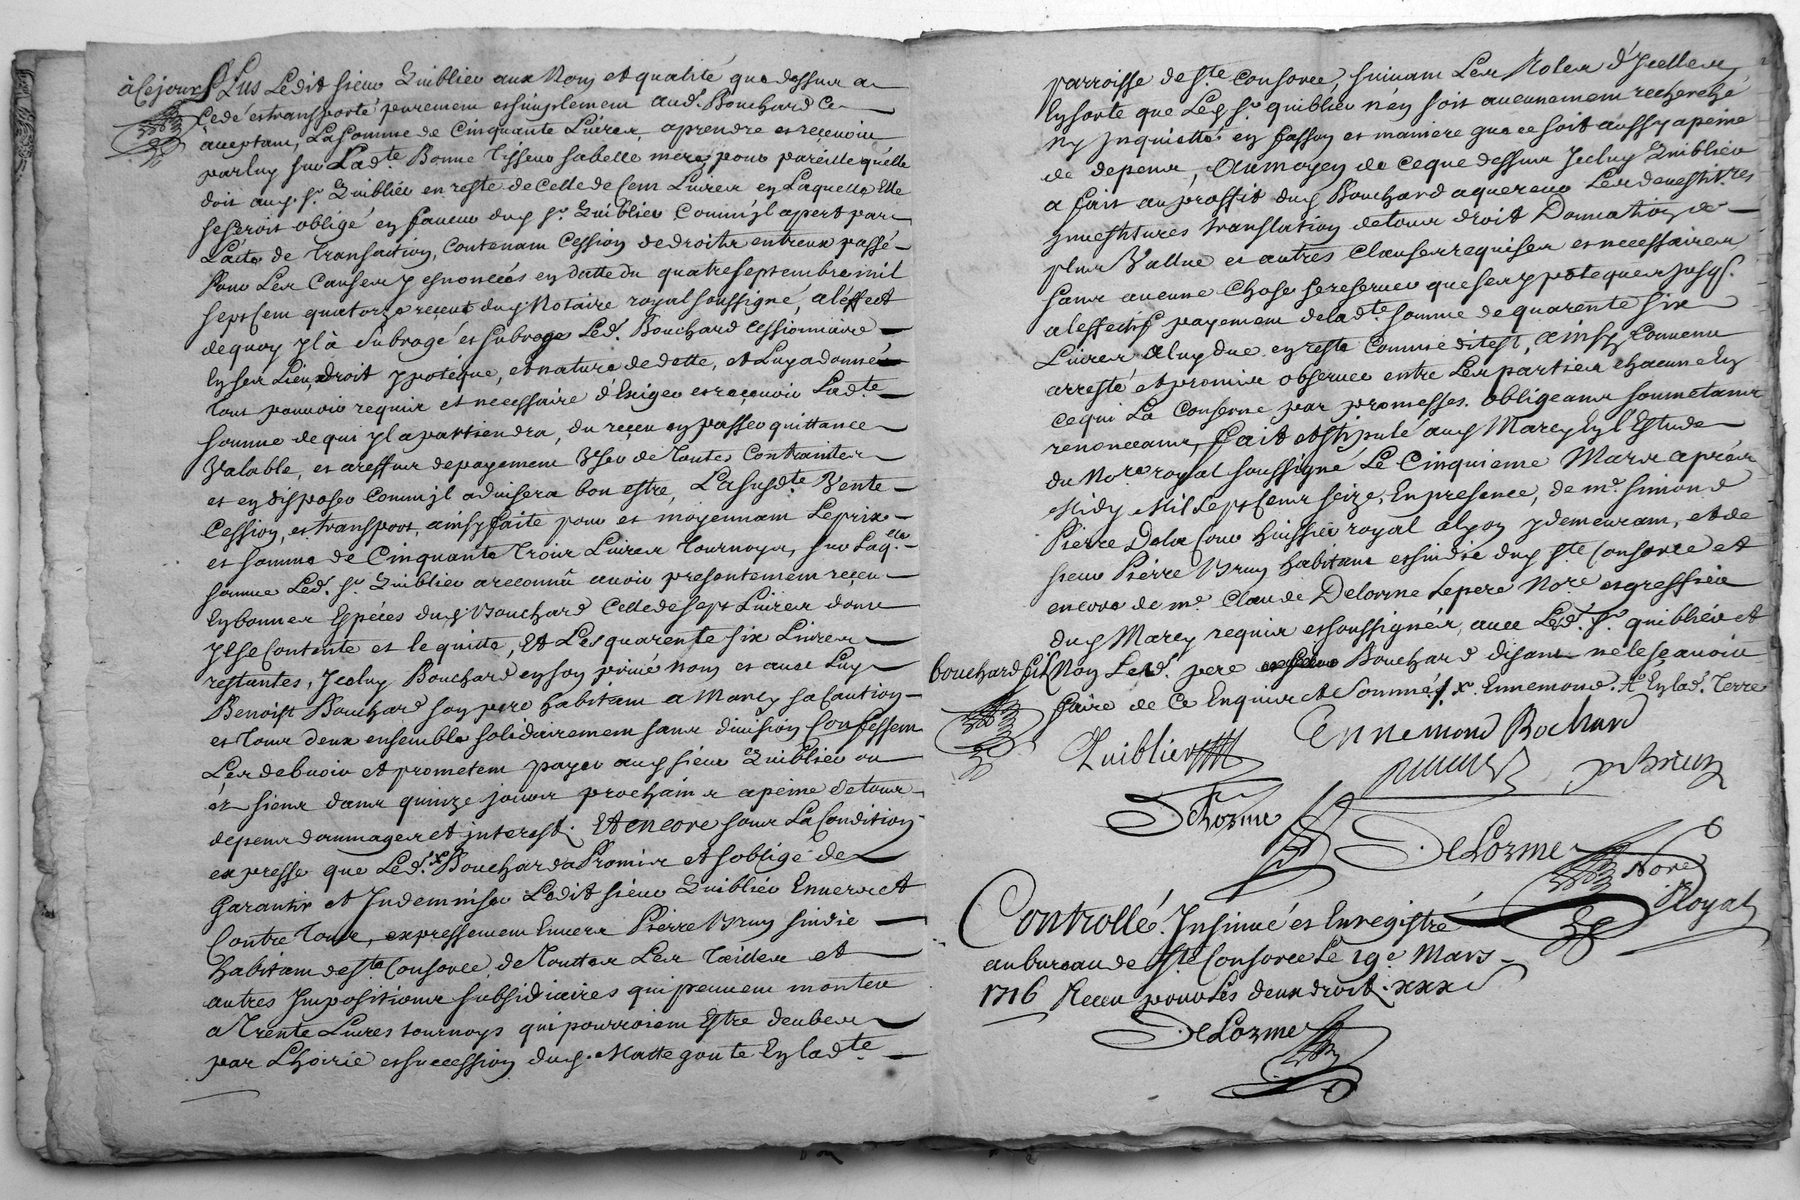 à Ce jour Plus Ledit sieur Quiblier aux Nom et qualité que dessus a
Cede et transporté purement et simplement aud. Bouchard Ce
aceptant, La somme de Cinquante Livres, aprendre et recevoir
par luy sur Ladte Bonne Tisseur sa belle mere, pour pareille qu'elle
doit aud. Sr. Quiblier en reste de Celle de Cent Livres en Laquelle Elle
se seroit obligé en faveur dud. Sr. Quiblier Comm'jl apert par
L'acte de Transaction, Contenant Cession de droits entreux passé
Pour Les Causes y esnoncées en datte du quatre septembre mil
sept Cent quatorze receue dud. Notaire royal soussigné, a l'éffect
dequoy jl à Subrogé et subroge Led. Bouchard Cessionnaire
En ses Lieu, droit ypotéque, et nature de dette, et Luy a donné
tout pouvoir requis et necessaire d'Exiger et recevoir Ladte
somme de qui jl apartiendra, du receu en passer quittance
Valable, et areffus de payement User de Toutes Contraintes
et en disposer Comm'jl advisera bon estre, La susdte Vente
Cession, et transport, ainsy faite pour et moyennant Le prix
et somme de Cinquante Trois Livres Tournoys, sur Laqlle
somme Led. Sr. Quiblier a reconnû avoir presentement receu
En bonnes Espéces dud. Bouchard Celle de sept Livres dont
jl se Contente et le quitte, Et Les quarente six Livres
restantes, Jceluy Bouchard en son privé nom et avec Luy
Benoist Bouchard son pere habitant a Marcy sa Caution
et Tous deux ensemble solidairement sans division Confessent
Les debvoir et prometent payer aud. sieur Quiblier ou
ez siens dans quinze jours prochains a peine de tous
depens dommages et interest. Et encore sous La Condition
expresse que Led. x Bouchard a Promis et s'oblige de
Garantir et Jndemniser Ledit sieur Quiblier Envers et
Contre Tous, expressement Envers Pierre Brun sindic
habitant de Ste Consorce, de Touttes Les Tailles et
autres Jmpositions subsidiaires qui peuvent monter
a Trente Livres tournoys qui pourroient Estre deubes
par L'hoirie et succession dud. Mattegoute En ladte
parroisse de Ste Consorce, suivant Les Roles d'Jcelles
En sorte que Led. Sr. quiblier n'en soit aucunement recherché
ny Jnquietté en fasson et maniere que ce soit aussy a peine
de depens, Au moyen de ce que dessus Jceluy Quiblier
a fait au proffit dud. Bouchard aquereur Les devestitres
jnvestitures translation de tous droit Donnation de
plus Vallue et autres Clauses requises et necessaires
sans aucune Chose se reserver que ses ypoteques jusq.
a l'effectif payement de ladte somme de quarente six
Livres a luy due en reste Comme dit est, ainsy Convenu
arresté et promis observer entre Les parties chacune En
ce qui La Conserne par promesses. obligeans soumetans
renonceans, fait et stipulé aud. Marcy En l'Estude
du Nore royal soussigné Le Cinquieme Mars aprés
Midy Mil sept Cent seize, En presence, de me. simond
Pierre Delacour huissier royal a Lyon y demeurant, et de
sieur Pierre Brun habitant et sindic dud. Ste Consorce et
encore de me. Claude Delorme Le pere Nore et greffier
dud. Marcy requis et soussignés, avec Led. Sr. quiblier et
bouchard fils Non Led. pere Bouchard disant ne le sçavoir
faire de Ce Enquis et Sommé / x. Ennemond. Ae En lad. Terre
Quiblier Ennemond Bochard
P Brun
Delorme
DeLorme Nore Royal
Controllé. Jnsinué et Enregistré
au bureau de Ste Consorce Le 19e Mars
1716 Receu pour Les deux droit. xxx s
DeLorme